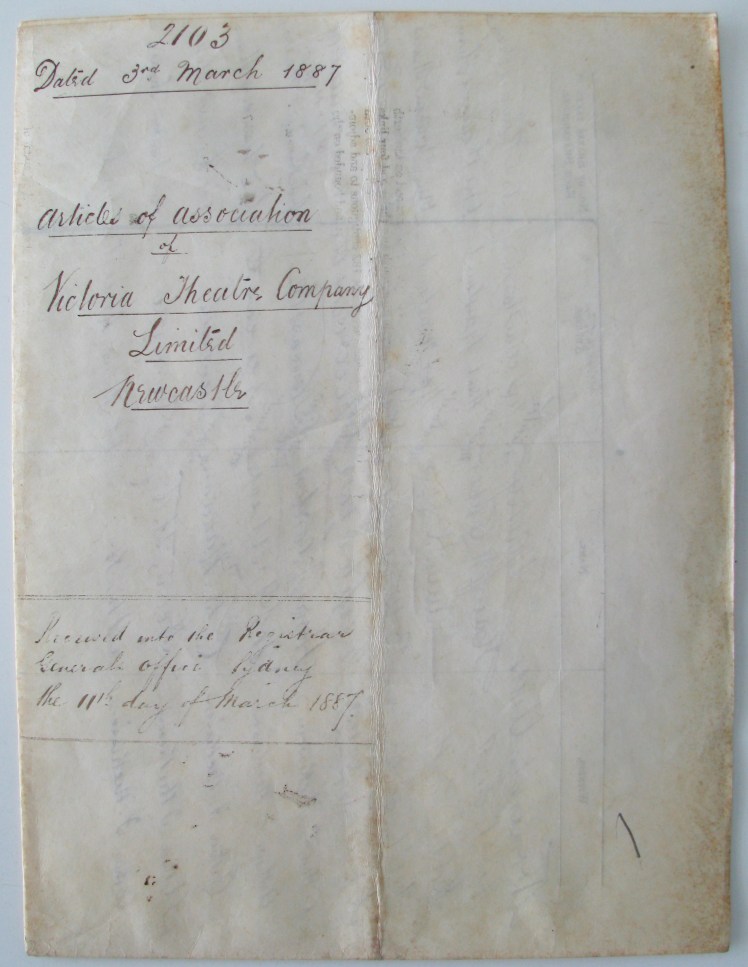 2103
Dated 3rd March 1887
Articles of Association
of
Victoria Theatre Company
Limited
Newcastle
Received into the Registrar
Generals office Sydney
the 11th day of March 1887.